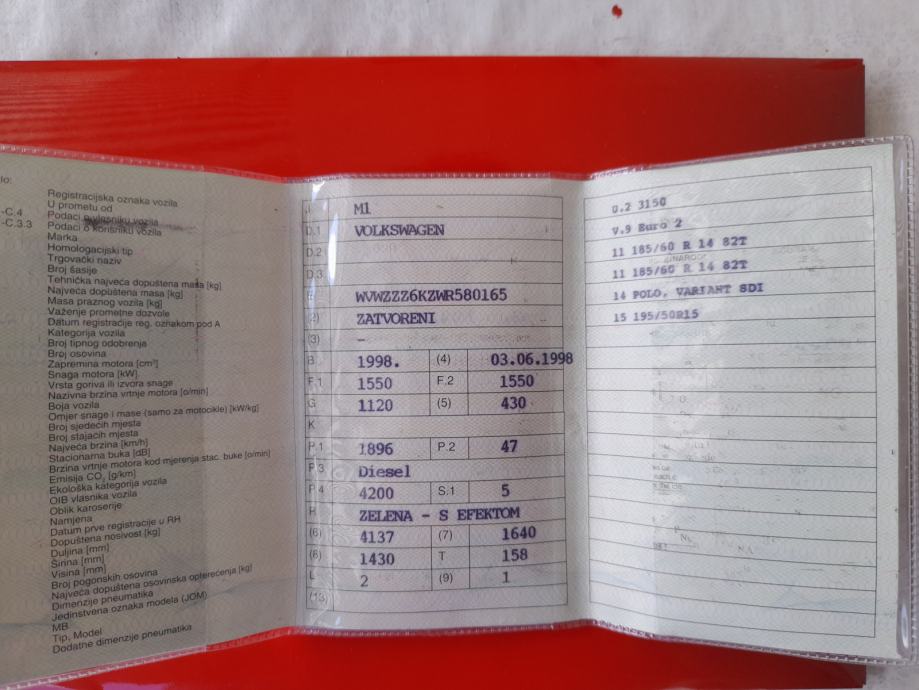 lo:
-C.4
-C.3.3
Registracijska oznaka vozila
U prometu od
Podaci o vlasniku vozila
Podaci o korisniku vozila
Marka
Homologacijski tip
Trgovački naziv
Broj šasije
Tehnička najveća dopuštena masa [kg]
Najveća dopuštena masa [kg]
Masa praznog vozila [kg]
Važenje prometne dozvole
Datum registracije reg. oznakom pod A
Kategorija vozila
Broj tipnog odobrenja
Broj osovina
Zapremina motora [cm³]
Snaga motora [kW]
Vrsta goriva ili izvora snage
Nazivna brzina vrtnje motora [o/min]
Boja vozila
Omjer snage i mase (samo za motocikle) [kW/kg]
Broj sjedećih mjesta
Broj stajaćih mjesta
Najveća brzina [km/h]
Stacionarna buka [dB]
Brzina vrtnje motora kod mjerenja stac. buke [o/min]
Emisija CO₂ [g/km]
Ekološka kategorija vozila
OIB vlasnika vozila
Oblik karoserije
Namjena
Datum prve registracije u RH
Dopuštena nosivost [kg]
Duljina [mm]
Širina [mm]
Visina [mm]
Broj pogonskih osovina
Najveća dopuštena osovinska opterećenja [kg]
Dimenzije pneumatika
Jedinstvena oznaka modela (JOM)
MB
Tip, Model
Dodatne dimenzije pneumatika
J M1
D.1 VOLKSWAGEN
D.2
D.3
E WVWZZZ6KZWR580165
(2) ZATVORENI
(3) –
B 1998. (4) 03.06.1998
F.1 1550 F.2 1550
G 1120 (5) 430
K
P.1 1896 P.2 47
P.3 Diesel
P.4 4200 S.1 5
R ZELENA - S EFEKTOM
(6) 4137 (7) 1640
(8) 1430 T 158
L 2 (9) 1
(13)
U.2 3150
V.9 Euro 2
11 185/60 R 14 82T
11 185/60 R 14 82T
14 POLO, VARIANT SDI
15 195/50R15